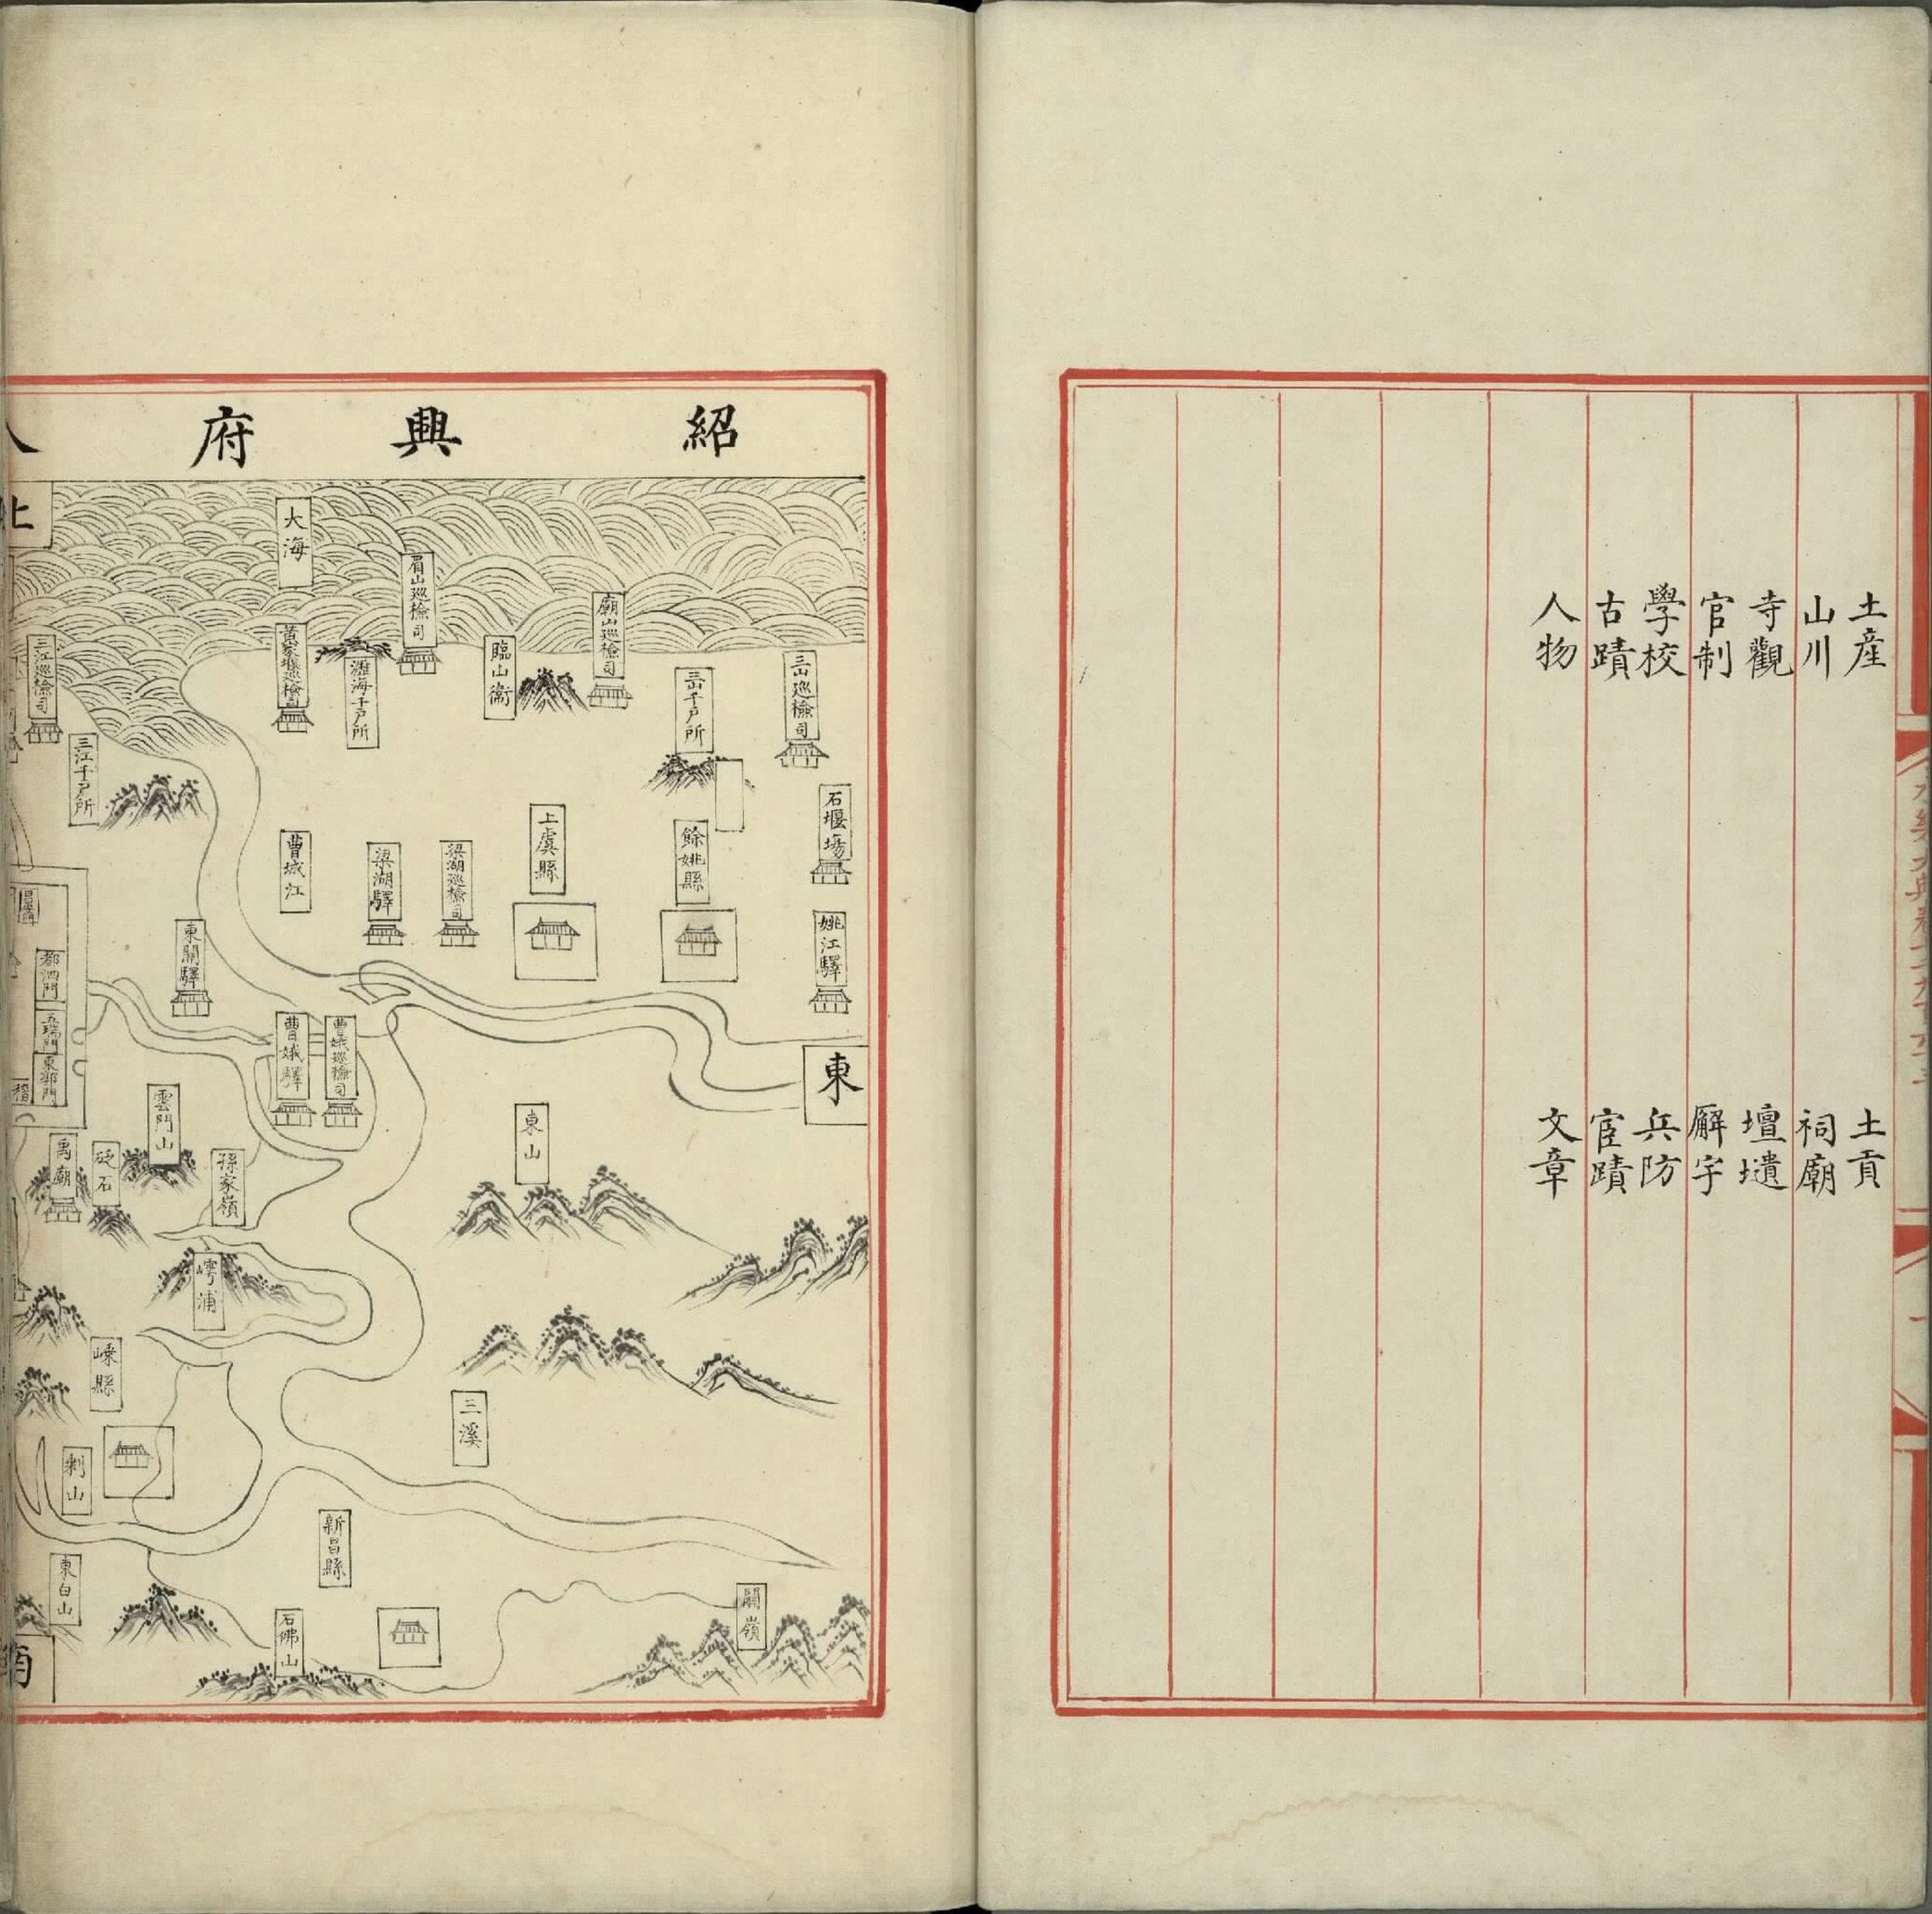 土産 土貢
山川 祠廟
寺觀 壇壝
官制 廨宇
學校 兵防
古蹟 宦蹟
人物 文章
紹興府
大海
眉山巡檢司
廟山巡檢司
黃家堰巡檢司
瀝海千戶所
臨山衛
三山千戶所
三山巡檢司
三江巡檢司
三江千戶所
石堰場
上虞縣
餘姚縣
姚江驛
梁湖巡檢司
梁湖驛
曹娥江
東關驛
都泗門
五瑞門
東郭門
曹娥巡檢司
曹娥驛
東
東山
雲門山
禹廟
孫家嶺
嶀浦
嵊縣
三溪
剡山
新昌縣
東白山
石佛山
關嶺